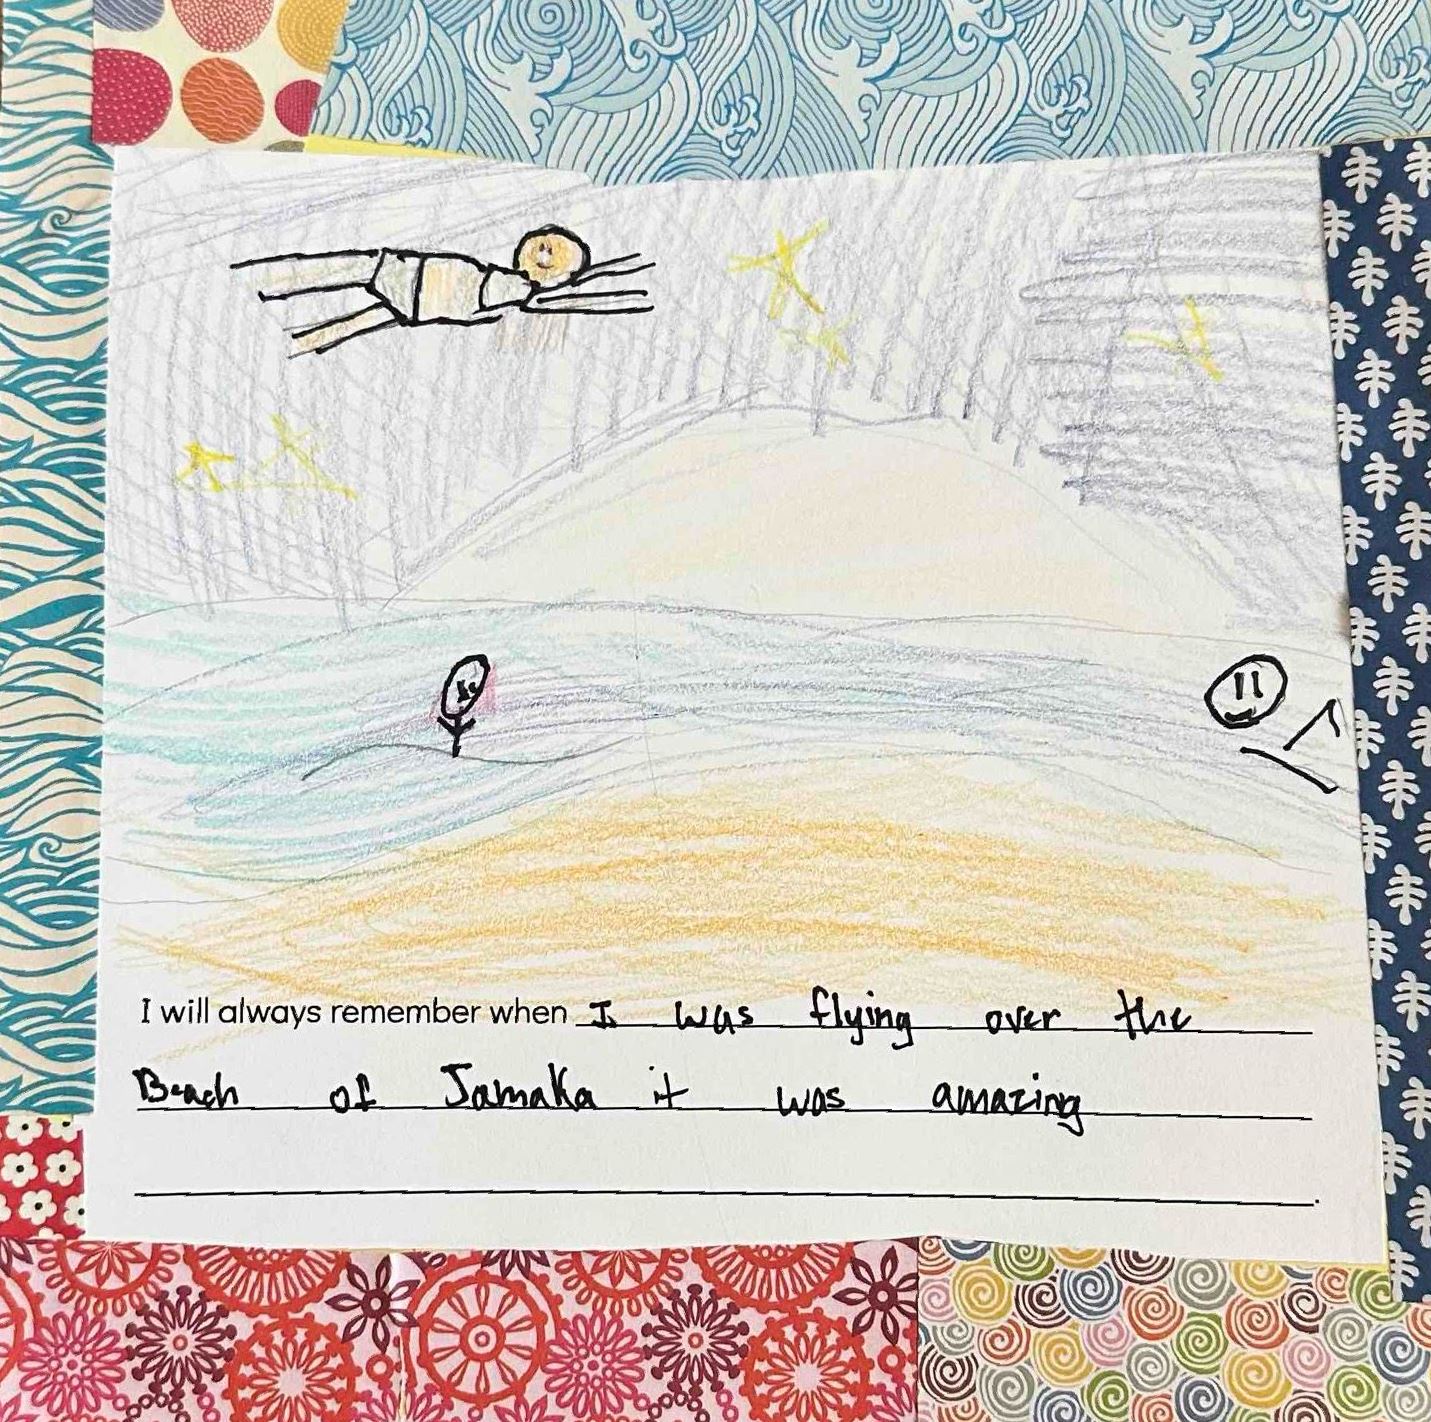 I will always remember when I was flying over the
Beach of Jamaka it was amazing